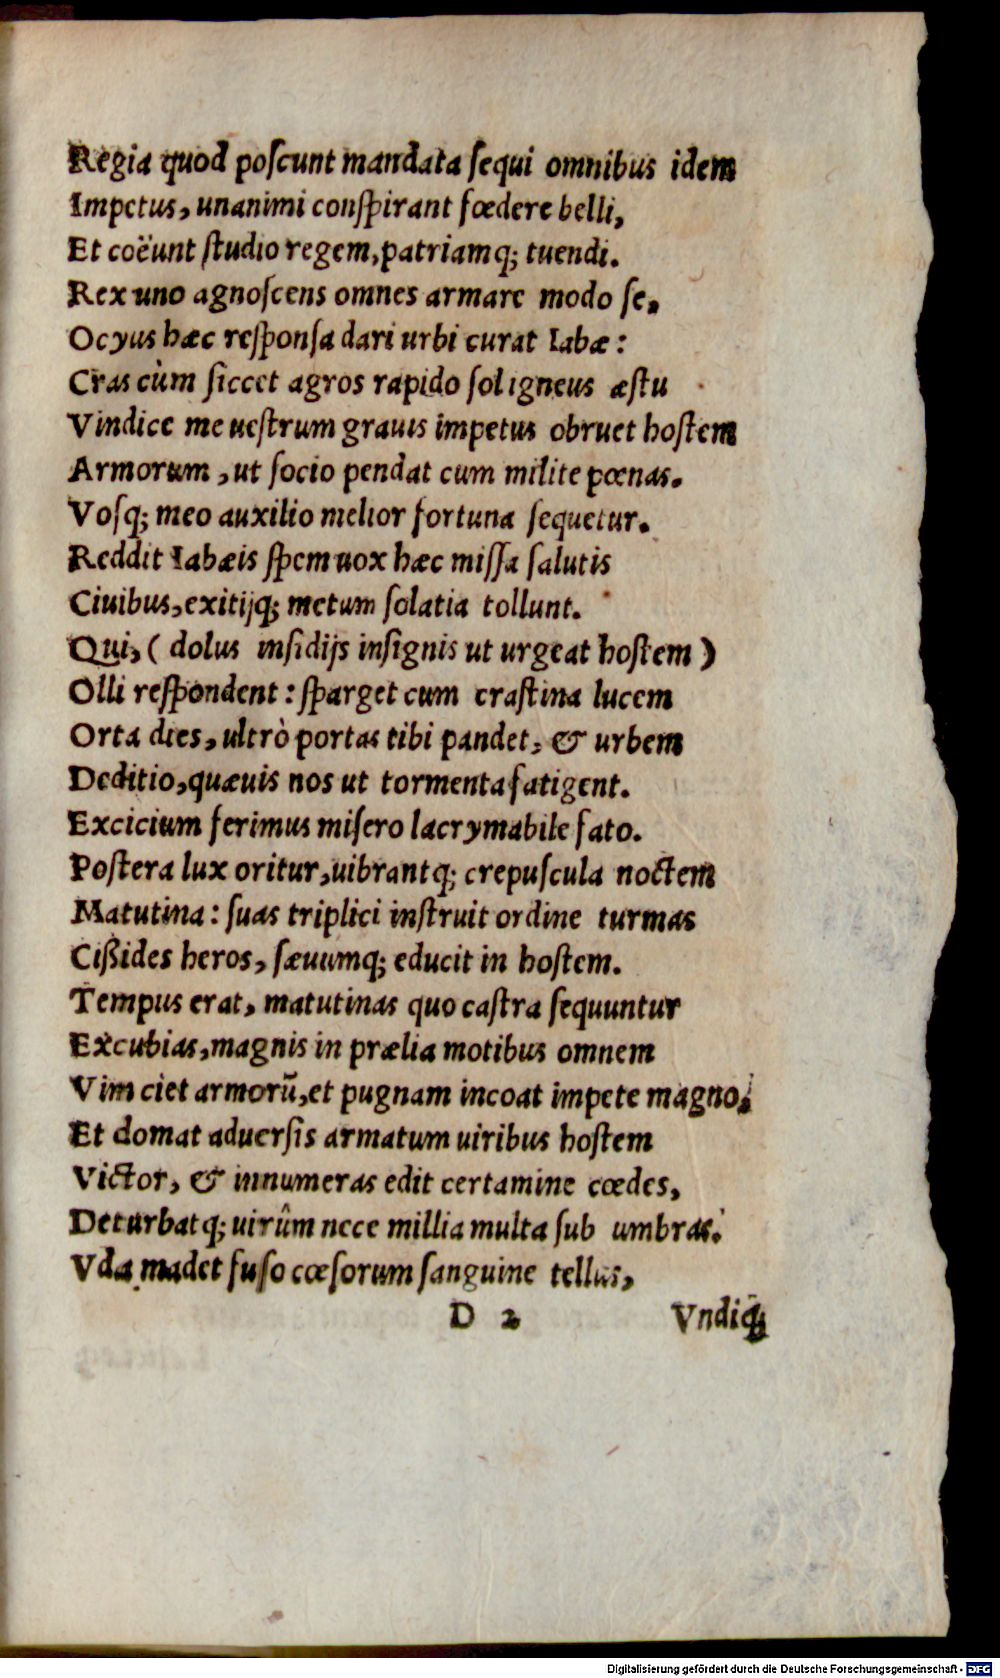 Regia quod poſcunt mandata ſequi omnibus idem
Impetus, unanimi conſpirant fœdere belli,
Et coëunt ſtudio regem, patriamq; tuendi.
Rex uno agnoſcens omnes armare modo ſe,
Ocyus hæc reſponſa dari urbi curat Iabæ:
Cras cùm ſiccet agros rapido ſol igneus æſtu
Vindice me ueſtrum grauis impetus obruet hoſtem
Armorum, ut ſocio pendat cum milite pœnas.
Voſq; meo auxilio melior fortuna ſequetur.
Reddit Iabæis ſpem uox hæc miſſa ſalutis
Ciuibus, exitijq; metum ſolatia tollunt.
Qui, (dolus inſidijs inſignis ut urgeat hoſtem)
Olli reſpondent: ſparget cum craſtina lucem
Orta dies, ultrò portas tibi pandet, & urbem
Deditio, quæuis nos ut tormenta fatigent.
Excicium ferimus miſero lacrymabile fato.
Poſtera lux oritur, uibrantq; crepuſcula noctem
Matutina: ſuas triplici inſtruit ordine turmas
Cißides heros, ſæuumq; educit in hoſtem.
Tempus erat, matutinas quo caſtra ſequuntur
Excubias, magnis in prælia motibus omnem
Vim ciet armorũ, et pugnam incoat impete magno,
Et domat aduerſis armatum uiribus hoſtem
Victor, & innumeras edit certamine cœdes,
Deturbatq; uirûm nece millia multa ſub umbras.
Vda madet fuſo cœſorum ſanguine tellus,
D 2 Vndiq;
Digitalisierung gefördert durch die Deutsche Forschungsgemeinschaft - DFG